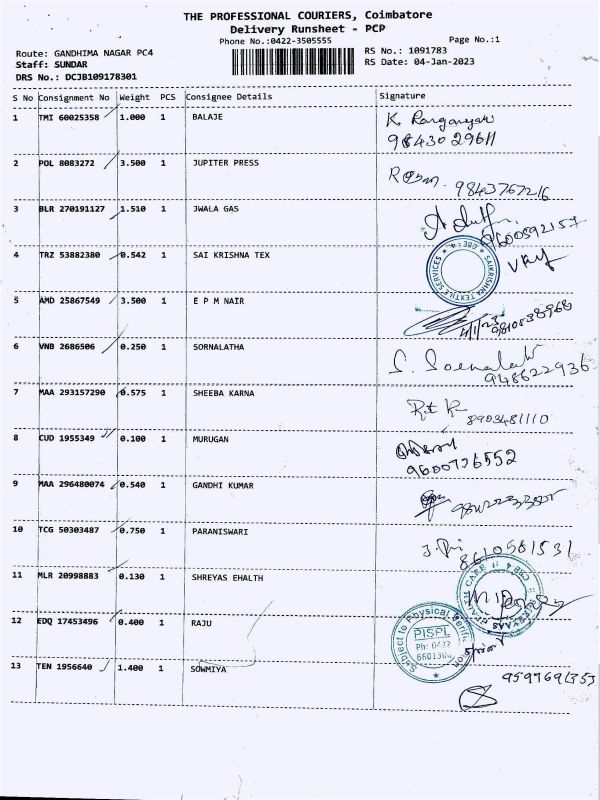 THE PROFESSIONAL COURIERS, Coimbatore
Delivery Runsheet - PCP
Phone No.:0422-3505555
Page No.:1
Route: GANDHIMA NAGAR PC4
RS No.: 1091783
Staff: SUNDAR
RS Date: 04-Jan-2023
DRS No.: DCJB109178301
S No Consignment No Weight PCS Consignee Details Signature
1 TMI 60025358 1.000 1 BALAJE
98430 29611
2 POL 8083272 3.500 1 JUPITER PRESS
9843767216
3 BLR 270191127 1.510 1 JWALA GAS
9600592157
4 TRZ 53882380 0.542 1 SAI KRISHNA TEX
SAIKRISHNA TEXTILE SERVICES * CBE-4 *
5 AMD 25867549 3.500 1 E P M NAIR
6 VNB 2686506 0.250 1 SORNALATHA
7 MAA 293157290 0.575 1 SHEEBA KARNA
8903481110
8 CUD 1955349 0.100 1 MURUGAN
9600726552
9 MAA 296480074 0.540 1 GANDHI KUMAR
10 TCG 50303487 0.750 1 PARANISWARI
8610581531
11 MLR 20998883 0.130 1 SHREYAS EHALTH
12 EDQ 17453496 0.400 1 RAJU
Subject to Physical Verification
PISPL
Ph: 0422
13 TEN 1956640 1.400 1 SOWMIYA
9597691353